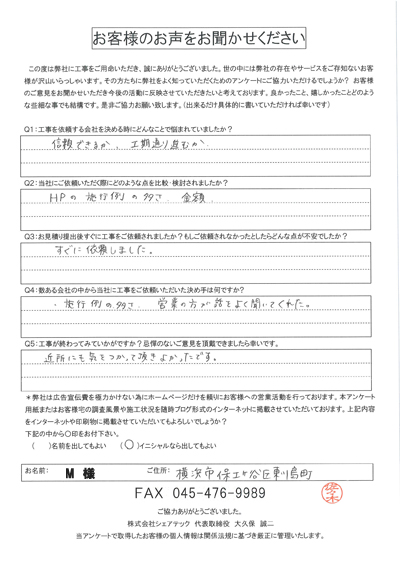 お客様のお声をお聞かせください
この度は弊社に工事をご用命いただき、誠にありがとうございました。世の中には弊社の存在やサービスをご存知ないお客
様が沢山いらっしゃいます。その方たちに弊社をよく知っていただくためのアンケートにご協力いただけるでしょうか？ お客様
のご意見をお聞かせいただき今後の活動に反映させていただきたいと考えております。良かったこと、嬉しかったことどのよう
な些細な事でも結構です。是非ご協力お願い致します。（出来るだけ具体的に書いていただければ幸いです）
Q1：工事を依頼する会社を決める時にどんなことで悩まれていましたか？
信頼できるか、工期通り進むか
Q2：当社にご依頼いただく際にどのような点を比較・検討されましたか？
HPの施行例の多さ、金額
Q3：お見積り提出後すぐに工事をご依頼されましたか？もしご依頼されなかったとしたらどんな点が不安でしたか？
すぐに依頼しました。
Q4：数ある会社の中から当社に工事をご依頼いただいた決め手は何ですか？
・施行例の多さ、営業の方が話をよく聞いてくれた。
Q5：工事が終わってみていかがですか？忌憚のないご意見を頂戴できましたら幸いです。
近所にも気をつかって頂きよかったです。
＊弊社は広告宣伝費を極力かけない為にホームページだけを頼りにお客様への営業活動を行っております。本アンケート
用紙またはお客様宅の調査風景や施工状況を随時ブログ形式のインターネットに掲載させていただいております。上記内容
をインターネットや印刷物に掲載させていただいてもよろしいでしょうか？
下記の中から〇印をお付下さい。
（　）名前を出してもよい （○）イニシャルなら出してもよい
お名前： M 様 ご住所： 横浜市保土ヶ谷区東川島町
FAX 045-476-9989
ご協力ありがとうございました。
株式会社シェアテック 代表取締役 大久保 誠二
当アンケートで取得したお客様の個人情報は関係法規に基づき厳正に管理いたします。